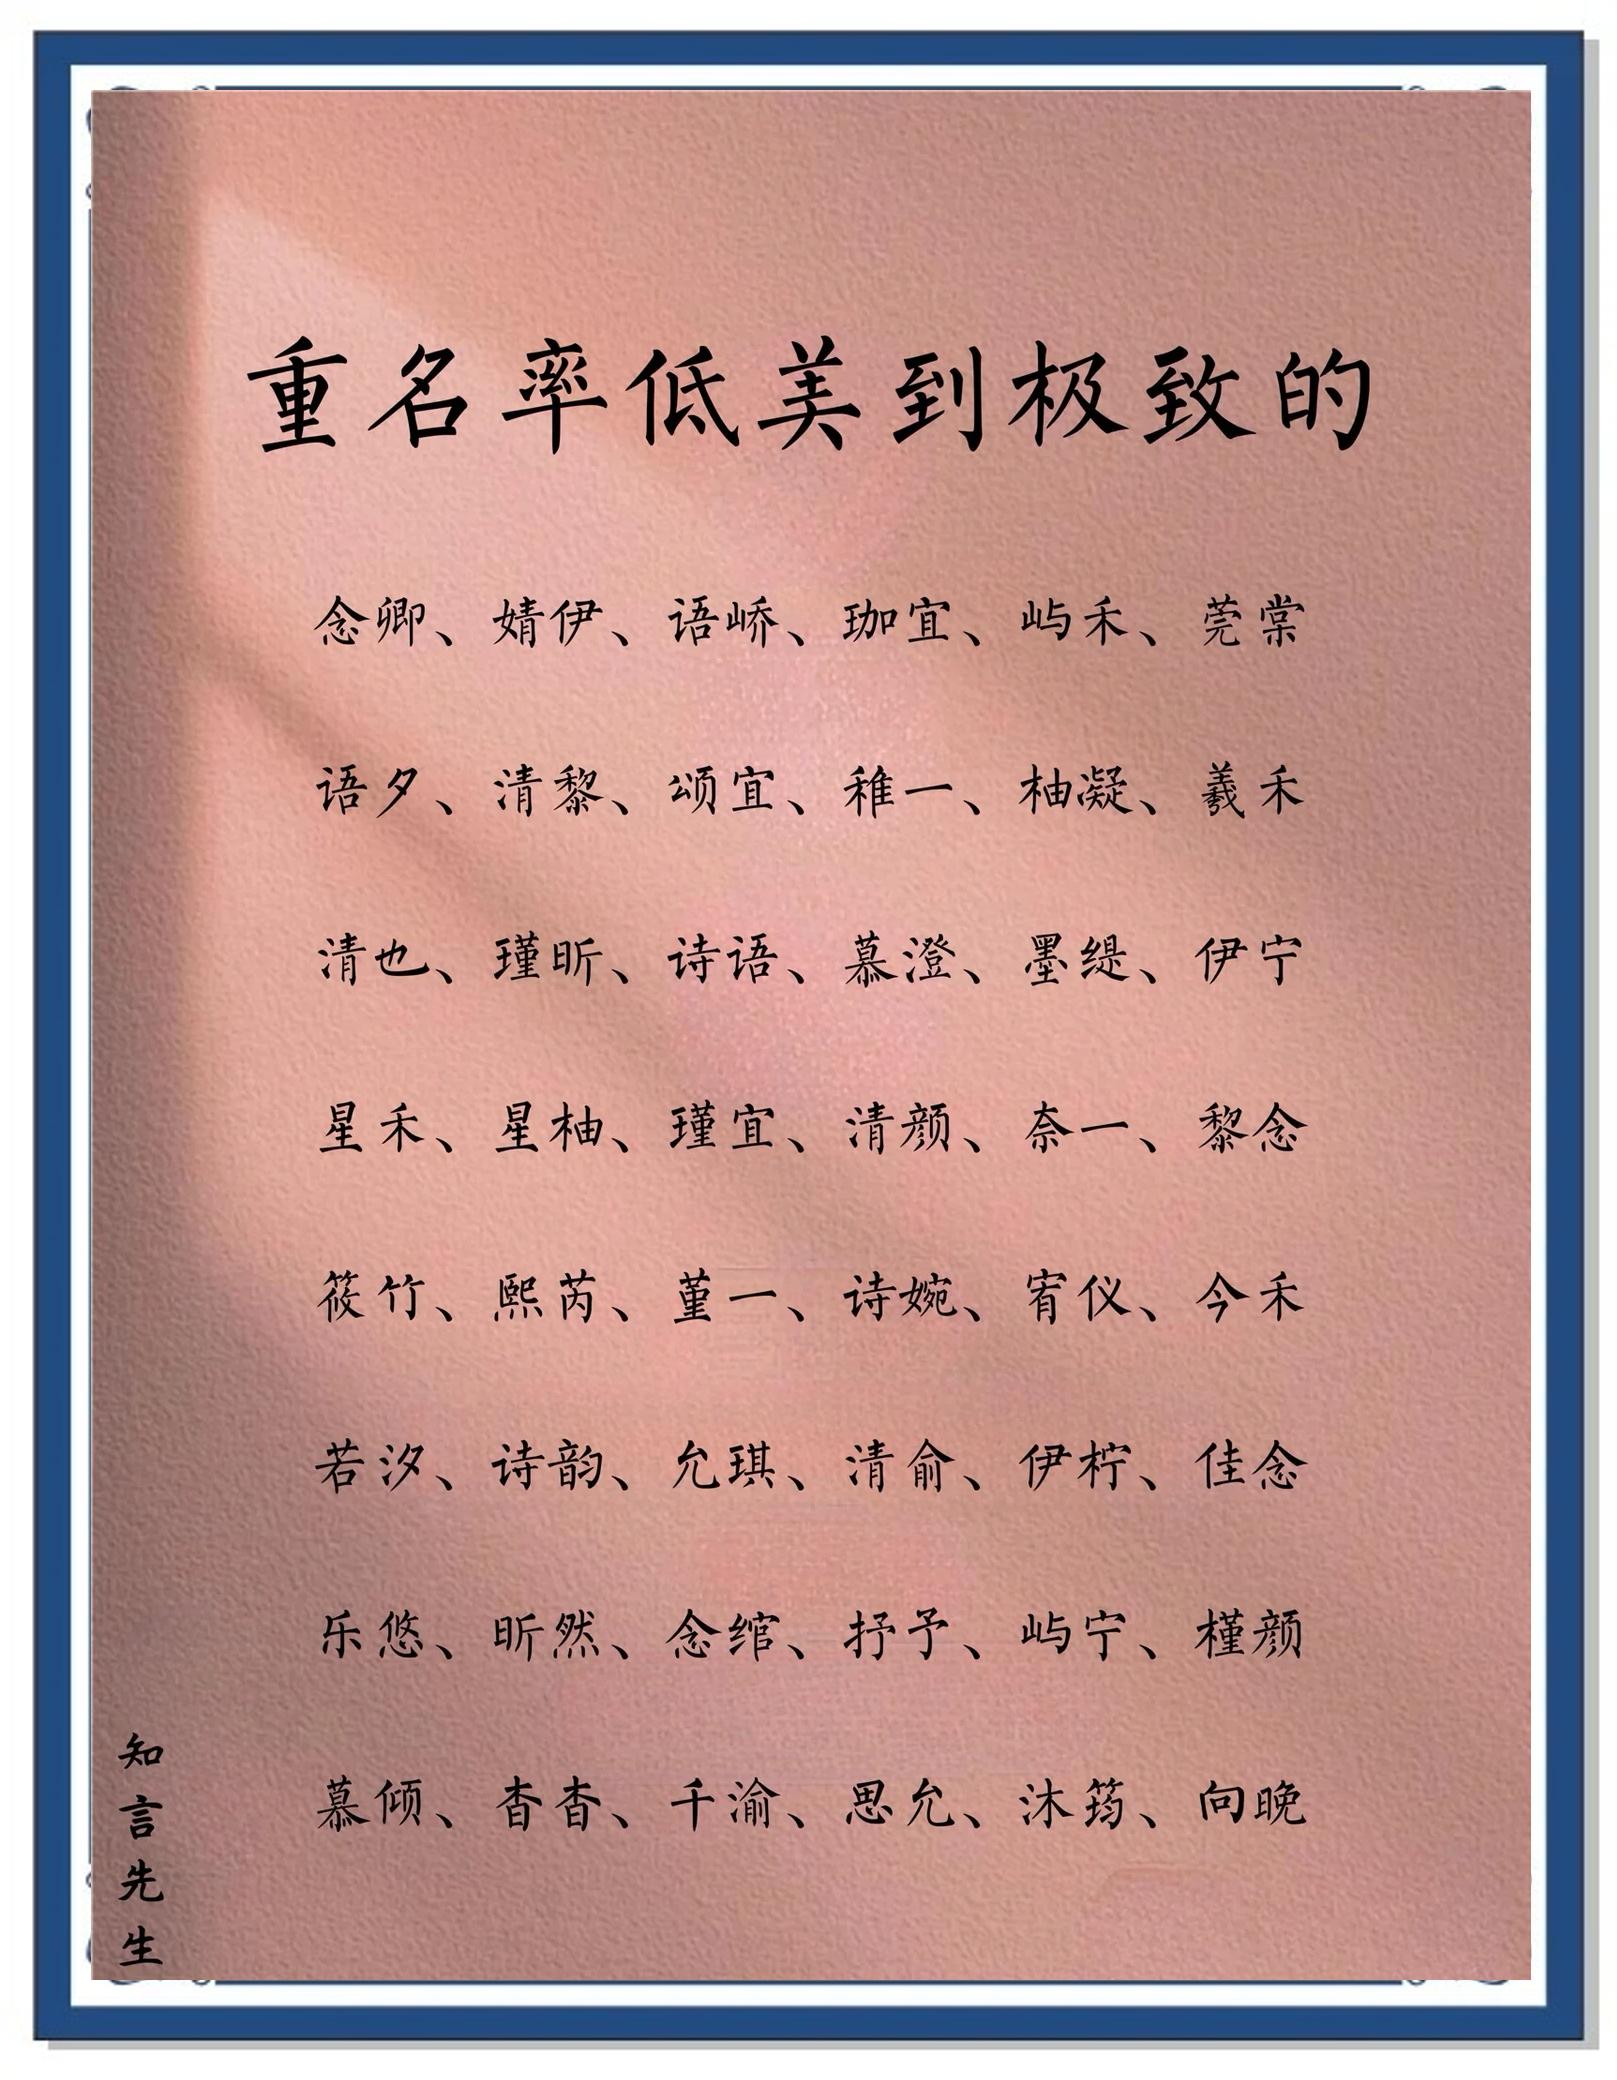 重名率低美到极致的
念卿、婧伊、语峤、珈宜、屿禾、莞棠
语夕、清黎、颂宜、稚一、柚凝、羲禾
清也、瑾昕、诗语、慕澄、墨缇、伊宁
星禾、星柚、瑾宜、清颜、奈一、黎念
筱竹、熙芮、堇一、诗婉、宥仪、今禾
若汐、诗韵、允琪、清俞、伊柠、佳念
乐悠、昕然、念绾、抒予、屿宁、槿颜
慕倾、杳杳、千渝、思允、沐筠、向晚
知言先生